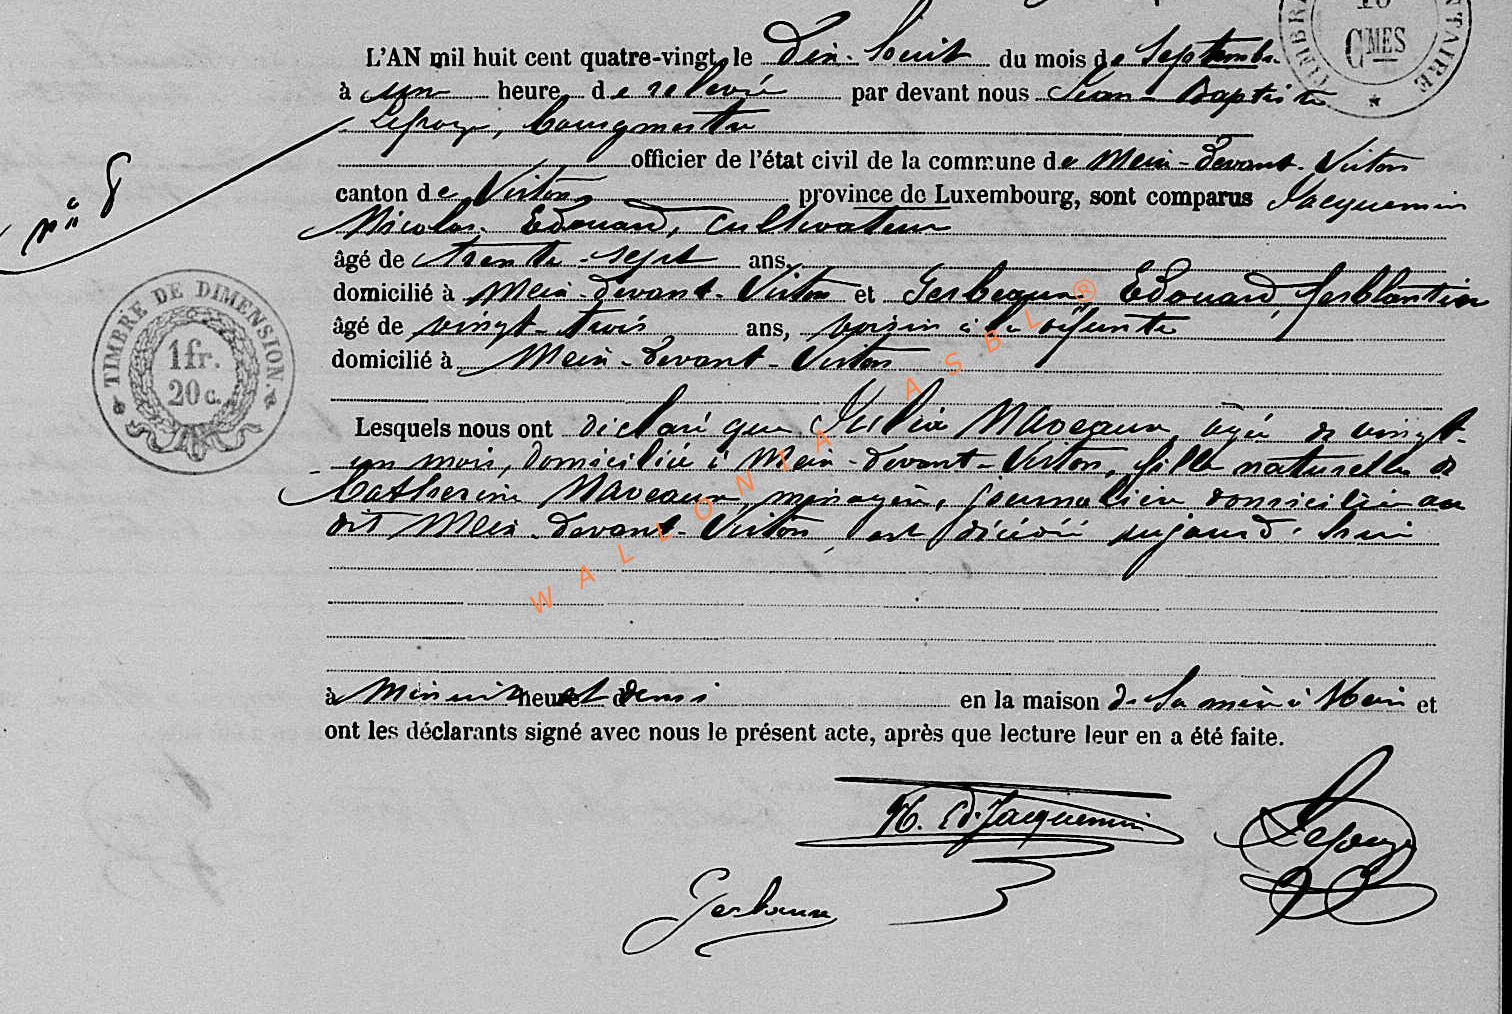 L'AN mil huit cent quatre-vingt, le Dix-huit du mois de Septembre
à une heure de relevée par devant nous Jean-Baptiste
bourgmestre
officier de l'état civil de la commune de Meix-devant-Virton
canton de Virton province de Luxembourg, sont comparus Jacquemin
Nicolas Edouard, cultivateur
âgé de trente-sept ans,
domicilié à Meix-devant-Virton et Gerbeaux Edouard, ferblantier
âgé de vingt-trois ans, voisin à la défunte
domicilié à Meix-devant-Virton
Lesquels nous ont déclaré que Julie Maveaux âgée de vingt-
un mois, domiciliée à Meix-devant-Virton, fille naturelle de
Catherine Maveaux ménagère, journalière domiciliée au
dit Meix-devant-Virton, est décédée aujourd'hui
à Minuit heure et demi en la maison de sa mère à Meix et
ont les déclarants signé avec nous le présent acte, après que lecture leur en a été faite.
N. Ed. Jacquemin
N° 8
TIMBRE DE DIMENSION.
1 fr.
20 c.
10
CMES
WALLONIA ASBL ®